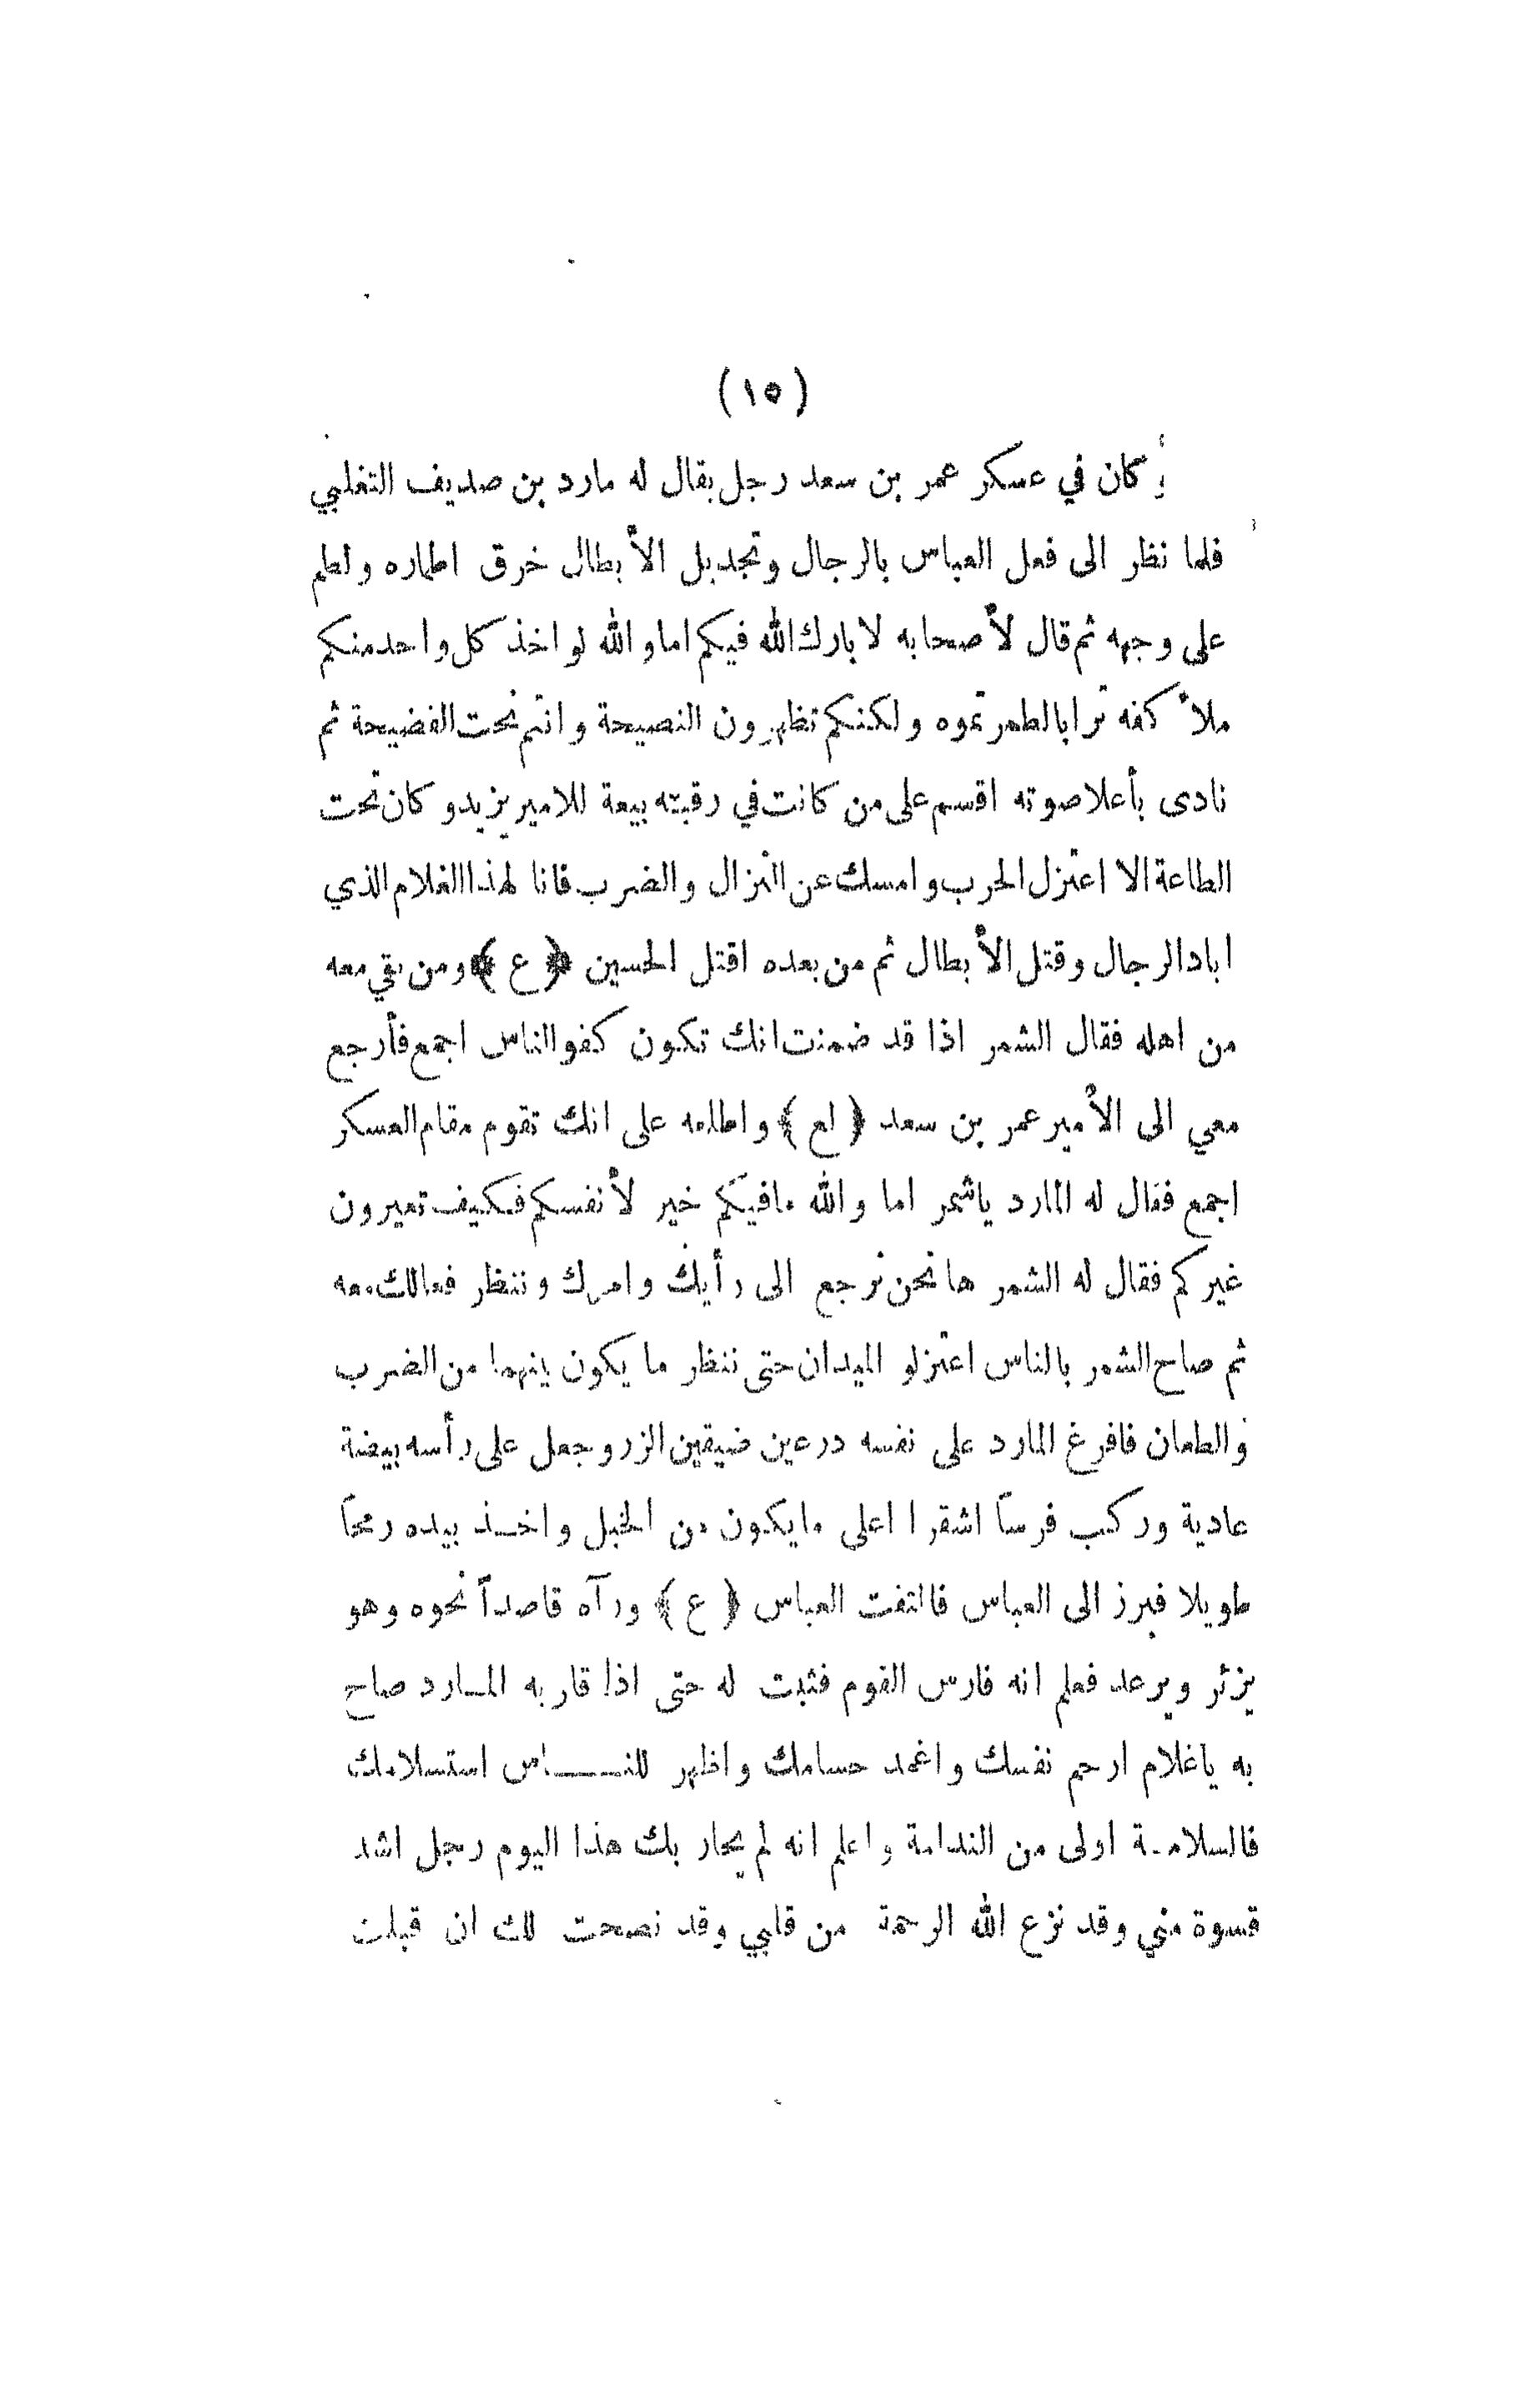 (١٥)
وكان في عسكر عمر بن سعد رجل يقال له مارد بن صديف التغلبي
فلما نظر الى فعل العباس بالرجال وتجديل الأبطال خرق اطماره ولطم
على وجهه ثم قال لأصحابه لا بارك الله فيكم اما والله لو اخذ كل واحد منكم
ملأ كفه ترابا لطمرتموه ولكنكم تظهرون النصيحة وانتم تحت الفضيحة ثم
نادى بأعلا صوته اقسم على من كانت في رقبته بيعة للامير يزيد وكان تحت
الطاعة الا اعتزل الحرب وامسك عن النزال والضرب فانا لهذا الغلام الذي
اباد الرجال وقتل الأبطال ثم من بعده اقتل الحسين ﴿ع﴾ ومن بقي معه
من اهله فقال الشمر اذا قد ضمنت انك تكون كفو الناس اجمع فأرجع
معي الى الأمير عمر بن سعد ﴿لع﴾ واطلعه على انك تقوم مقام العسكر
اجمع فقال له المارد ياشمر اما والله مافيكم خير لأنفسكم فكيف تعيرون
غيركم فقال له الشمر ها نحن نرجع الى رأيك وامرك وننظر فعالك معه
ثم صاح الشمر بالناس اعتزلو الميدان حتى ننظر ما يكون بينهما من الضرب
والطعان فافرغ المارد على نفسه درعين ضيقين الزرد وجعل على رأسه بيضة
عادية وركب فرساً اشقرا اعلى مايكون من الخيل واخـذ بيده رمحاً
طويلا فبرز الى العباس فالتفت العباس ﴿ع﴾ ورآه قاصداً نحوه وهو
يزئر ويرعد فعلم انه فارس القوم فثبت له حتى اذا قاربه المـارد صاح
به ياغلام ارحم نفسك واغمد حسامك واظهر للنـــاس استسلامك
فالسلامـة اولى من الندامة واعلم انه لم يحار بك هذا اليوم رجل اشد
قسوة مني وقد نزع الله الرحمة من قلبي وقد نصحت لك ان قبلت